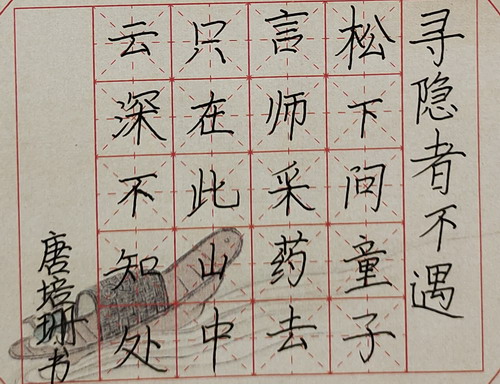 寻隐者不遇
松下问童子
言师采药去
只在此山中
云深不知处
唐培珊书